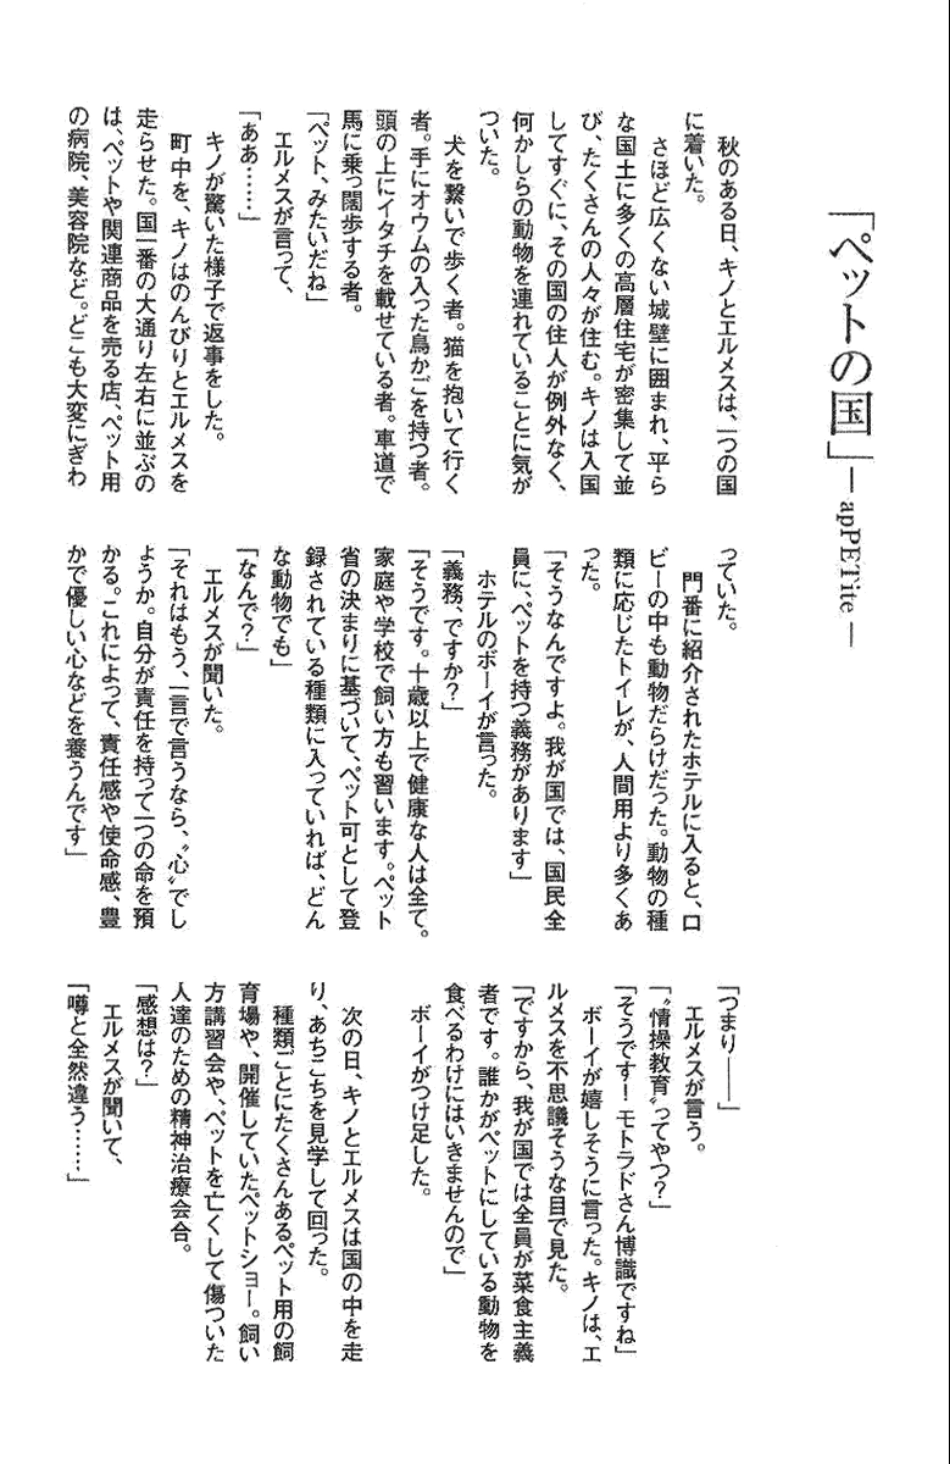 「ペットの国」― apPETite ―
秋のある日、キノとエルメスは、一つの国
に着いた。
さほど広くない城壁に囲まれ、平ら
な国土に多くの高層住宅が密集して並
び、たくさんの人々が住む。キノは入国
してすぐに、その国の住人が例外なく、
何かしらの動物を連れていることに気が
ついた。
犬を繋いで歩く者。猫を抱いて行く
者。手にオウムの入った鳥かごを持つ者。
頭の上にイタチを載せている者。車道で
馬に乗っ闊歩する者。
「ペット、みたいだね」
エルメスが言って、
「ああ……」
キノが驚いた様子で返事をした。
町中を、キノはのんびりとエルメスを
走らせた。国一番の大通り左右に並ぶの
は、ペットや関連商品を売る店、ペット用
の病院、美容院など。どこも大変にぎわ
っていた。
門番に紹介されたホテルに入ると、ロ
ビーの中も動物だらけだった。動物の種
類に応じたトイレが、人間用より多くあ
った。
「そうなんですよ。我が国では、国民全
員に、ペットを持つ義務があります」
ホテルのボーイが言った。
「義務、ですか？」
「そうです。十歳以上で健康な人は全て。
家庭や学校で飼い方も習います。ペット
省の決まりに基づいて、ペット可として登
録されている種類に入っていれば、どん
な動物でも」
「なんで？」
エルメスが聞いた。
「それはもう、一言で言うなら、〝心〟でし
ょうか。自分が責任を持って一つの命を預
かる。これによって、責任感や使命感、豊
かで優しい心などを養うんです」
「つまり――」
エルメスが言う。
「〝情操教育〟ってやつ？」
「そうです！ モトラドさん博識ですね」
ボーイが嬉しそうに言った。キノは、エ
ルメスを不思議そうな目で見た。
「ですから、我が国では全員が菜食主義
者です。誰かがペットにしている動物を
食べるわけにはいきませんので」
ボーイがつけ足した。
次の日、キノとエルメスは国の中を走
り、あちこちを見学して回った。
種類ごとにたくさんあるペット用の飼
育場や、開催していたペットショー。飼い
方講習会や、ペットを亡くして傷ついた
人達のための精神治療会合。
「感想は？」
エルメスが聞いて、
「噂と全然違う……」